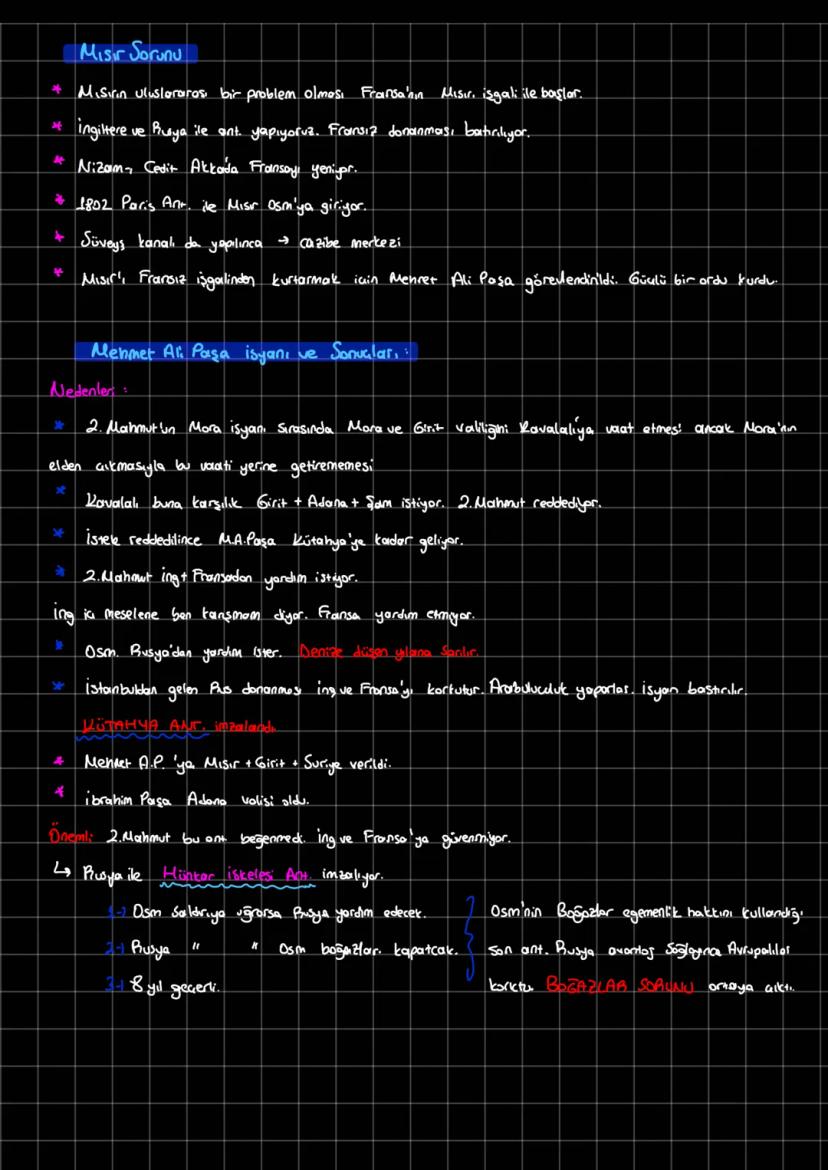 Mısır Sorunu
* Mısırın uluslararası bir problem olması Fransa'nın Mısırı işgali ile başlar.
* İngiltere ve Rusya ile ant. yapıyoruz. Fransız donanması batırılıyor.
* Nizam-ı Cedit Akka'da Fransayı yeniyor.
* 1802 Paris Ant. ile Mısır Osm'ya giriyor.
* Süveyş kanalı da yapılınca → cazibe merkezi
* Mısır'ı Fransız işgalinden kurtarmak için Mehmet Ali Paşa görevlendirildi. Güçlü bir ordu kurdu.
Mehmet Ali Paşa isyanı ve Sonuçları :
Nedenleri :
* 2. Mahmut'un Mora isyanı sırasında Mora ve Girit valiliğini Kavalalı'ya vaat etmesi ancak Mora'nın
elden çıkmasıyla bu vaati yerine getirememesi
* Kavalalı buna karşılık Girit + Adana + Şam istiyor. 2. Mahmut reddediyor.
* İstek reddedilince M.A.Paşa Kütahya'ya kadar geliyor.
* 2. Mahmut ing + Fransadan yardım istiyor.
ing iç meselene ben karışmam diyor. Fransa yardım etmiyor.
* Osm. Rusya'dan yardım ister. Denize düşen yılana sarılır.
* İstanbuldan gelen Rus donanması ing ve Fransa'yı korkutur. Arabuluculuk yaparlar. isyan bastırılır.
KÜTAHYA ANT. imzalandı
* Mehmet A.P. 'ya Mısır + Girit + Suriye verildi.
* ibrahim Paşa Adana valisi oldu.
Önemli: 2. Mahmut bu ant beğenmedi. ing ve Fransa'ya güvenmiyor.
↳ Rusya ile Hünkar iskelesi Ant. imzalıyor.
1-) Osm saldırıya uğrarsa Rusya yardım edecek.
2-) Rusya " " Osm boğazları kapatcak.
3-) 8 yıl geçerli.
Osm'nin Boğazlar egemenlik hakkını kullandığı
son ant. Rusya avantaj sağlayınca Avrupalılar
korktu BOĞAZLAR SORUNU ortaya çıktı.